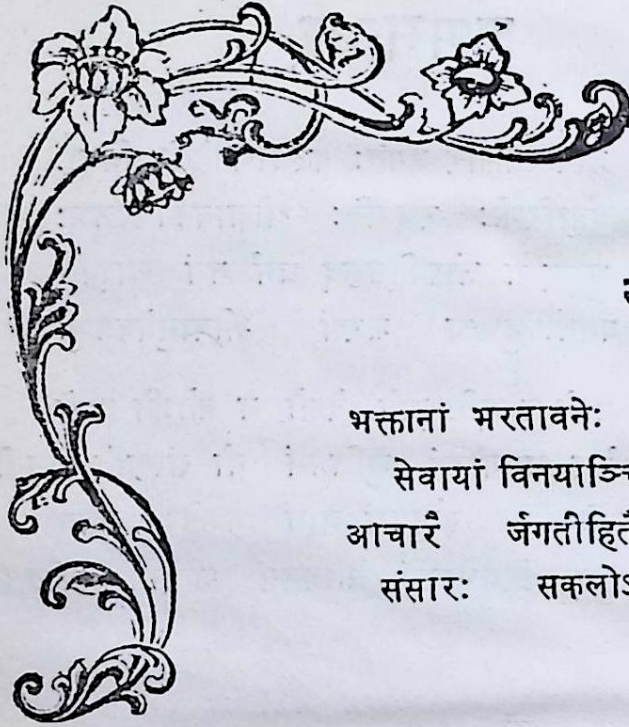 भक्तानां भरतावनेः
सेवायां विनयाञ्चि
आचारै र्जगतीहितै
संसारः सकलोऽ